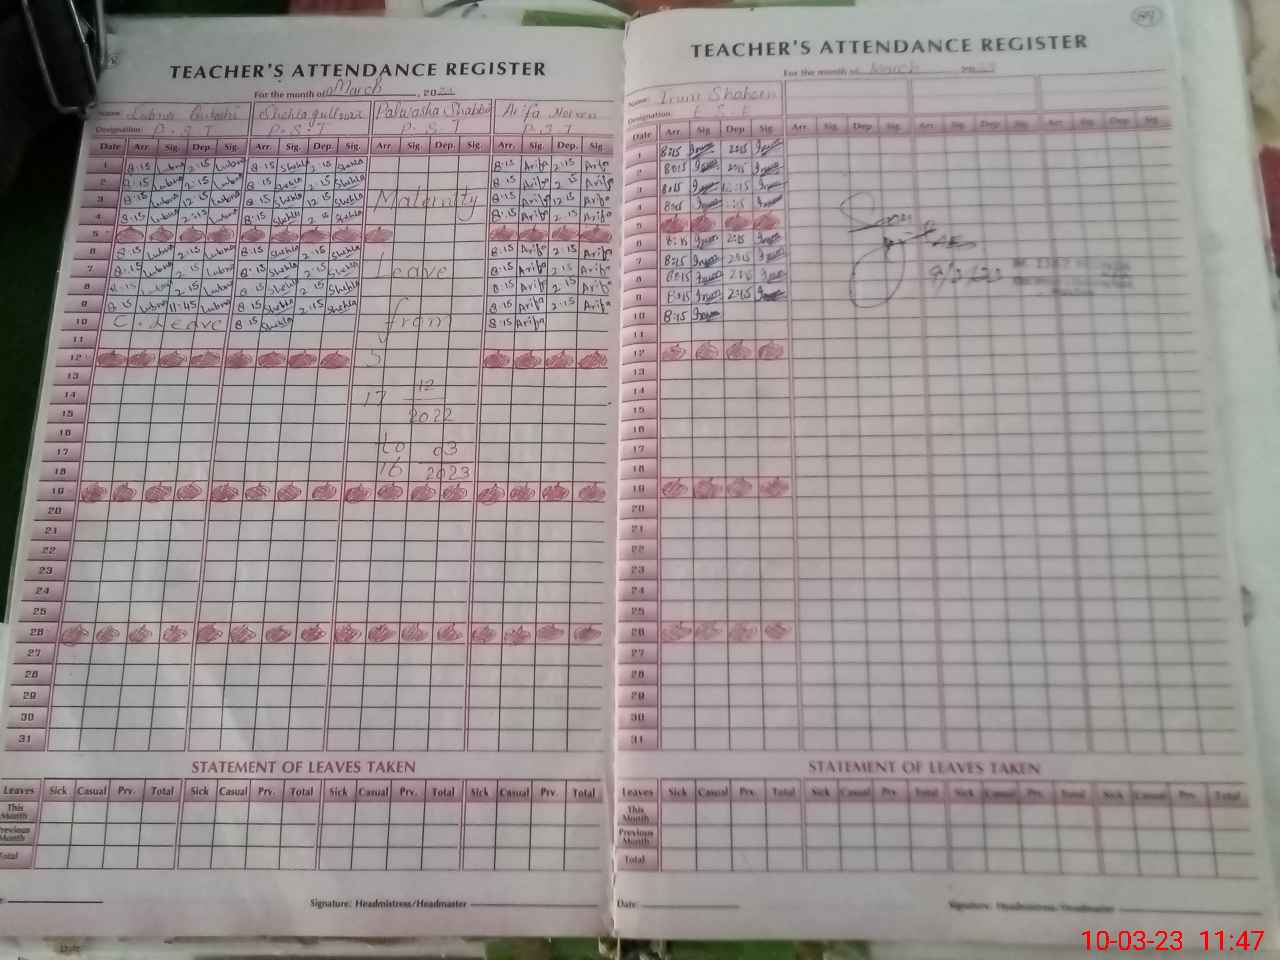 TEACHER'S ATTENDANCE REGISTER
For the month of March, 20
Name: Lubna Shehla gulnaz Palwasha Shabbir Arifa
Designation: P.S.T P.S.T P.S.T P.S.T
Date Arr. Sig. Dep. Sig. Arr. Sig. Dep. Sig. Arr. Sig. Dep. Sig. Arr. Sig. Dep. Sig.
1 8:15 Lubna 2:15 Lubna 8:15 Shehla 2:15 Shehla 8:15 Arifa 2:15 Arifa
2 8:15 Lubna 2:15 Lubna 8:15 Shehla 2:15 Shehla 8:15 Arifa 2:15 Arifa
3 8:15 Lubna 12:15 Lubna 8:15 Shehla 12:15 Shehla Maternity 8:15 Arifa 12:15 Arifa
4 8:15 Lubna 2:15 Lubna 8:15 Shehla 2:15 Shehla 8:15 Arifa 2:15 Arifa
5
6 8:15 Lubna 2:15 Lubna 8:15 Shehla 2:15 Shehla 8:15 Arifa 2:15 Arifa
7 8:15 Lubna 2:15 Lubna 8:15 Shehla 2:15 Shehla Leave 8:15 Arifa 2:15 Arifa
8 8:15 Lubna 2:15 Lubna 8:15 Shehla 2:15 Shehla 8:15 Arifa 2:15 Arifa
9 8:15 Lubna 11:45 Lubna 8:15 Shehla 2:15 Shehla 8:15 Arifa 2:15 Arifa
10 C. Leave 8:15 Shehla from 8:15 Arifa
11
12
13
14 17 12
15 2022
16
17 to 03
18 16 2023
19
20
21
22
23
24
25
26
27
28
29
30
31
STATEMENT OF LEAVES TAKEN
Leaves Sick Casual Prv. Total Sick Casual Prv. Total Sick Casual Prv. Total Sick Casual Prv. Total
This Month
Previous Month
Total
Signature: Headmistress/Headmaster
89
TEACHER'S ATTENDANCE REGISTER
For the month of March
Name: Irum Shaheen
Designation:
Date Arr. Sig. Dep. Sig. Arr. Sig. Dep Sig. Arr Sig. Dep Sig. Arr. Sig. Dep. Sig.
1 8:15 Irum 2:15 Irum
2 8:15 Irum 2:15 Irum
3 8:15 Irum 12:15 Irum
4 8:15 Irum Irum
5
6 8:15 Irum 2:15 Irum
7 8:15 Irum 2:15 Irum
8 8:15 Irum 2:15 Irum
9 8:15 Irum 2:15 Irum
10 8:15 Irum
11
12
13
14
15
16
17
18
19
20
21
22
23
24
25
26
27
28
29
30
31
STATEMENT OF LEAVES TAKEN
Leaves Sick Casual Prv. Total Sick Casual Prv. Total Sick Casual Prv. Total Sick Casual Prv. Total
This Month
Previous Month
Total
Date Signature: Headmistress/Headmaster
10-03-23 11:47